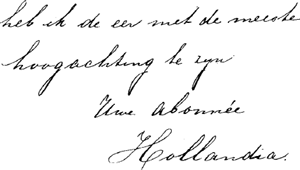 heb ik de eer met de meeste
hoogachting te zijn
Uwe abonnée
Hollandia.